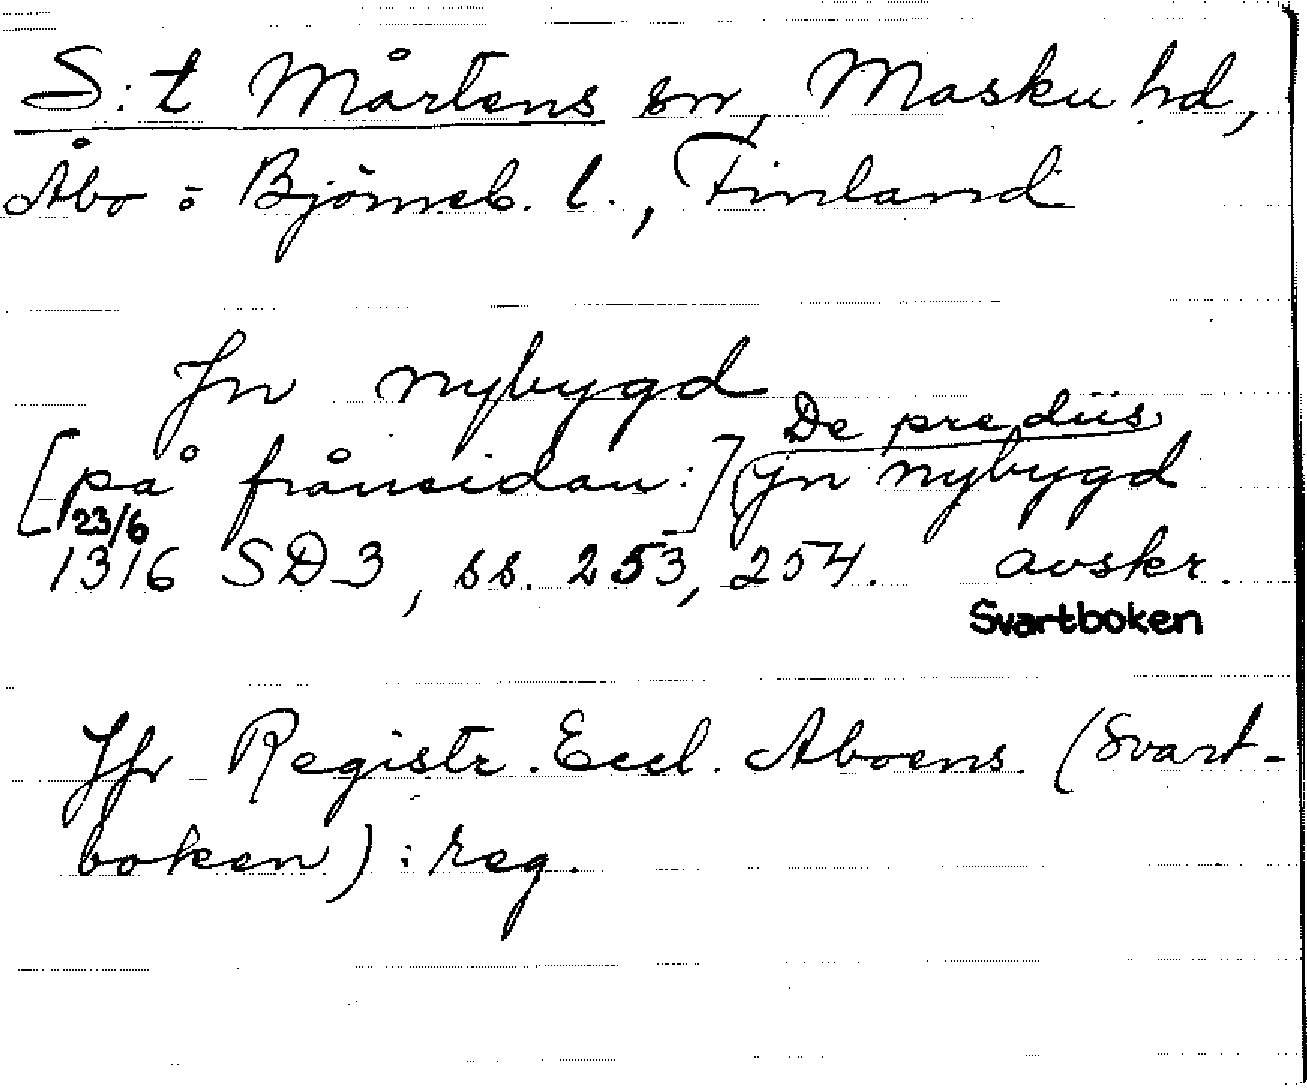 S:t Mårtens sn, Masku hd,
Åbo = Björneb. l., Finland
Jn nybygd
De prediis
[på frånsidan:] Jn nybygd
23/6
1316 SD 3, ss. 253, 254. avskr.
Svartboken
Jfr Registr. Eccl. Aboens. (Svart-
boken): reg.